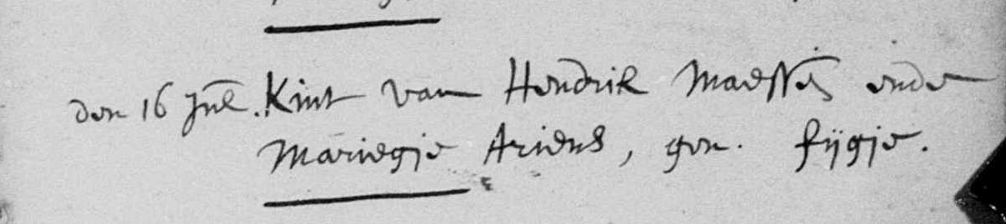 den 16 Jul. Kint van Hendrik Maessen ende
Mariegje Ariens, gen. fijgje.